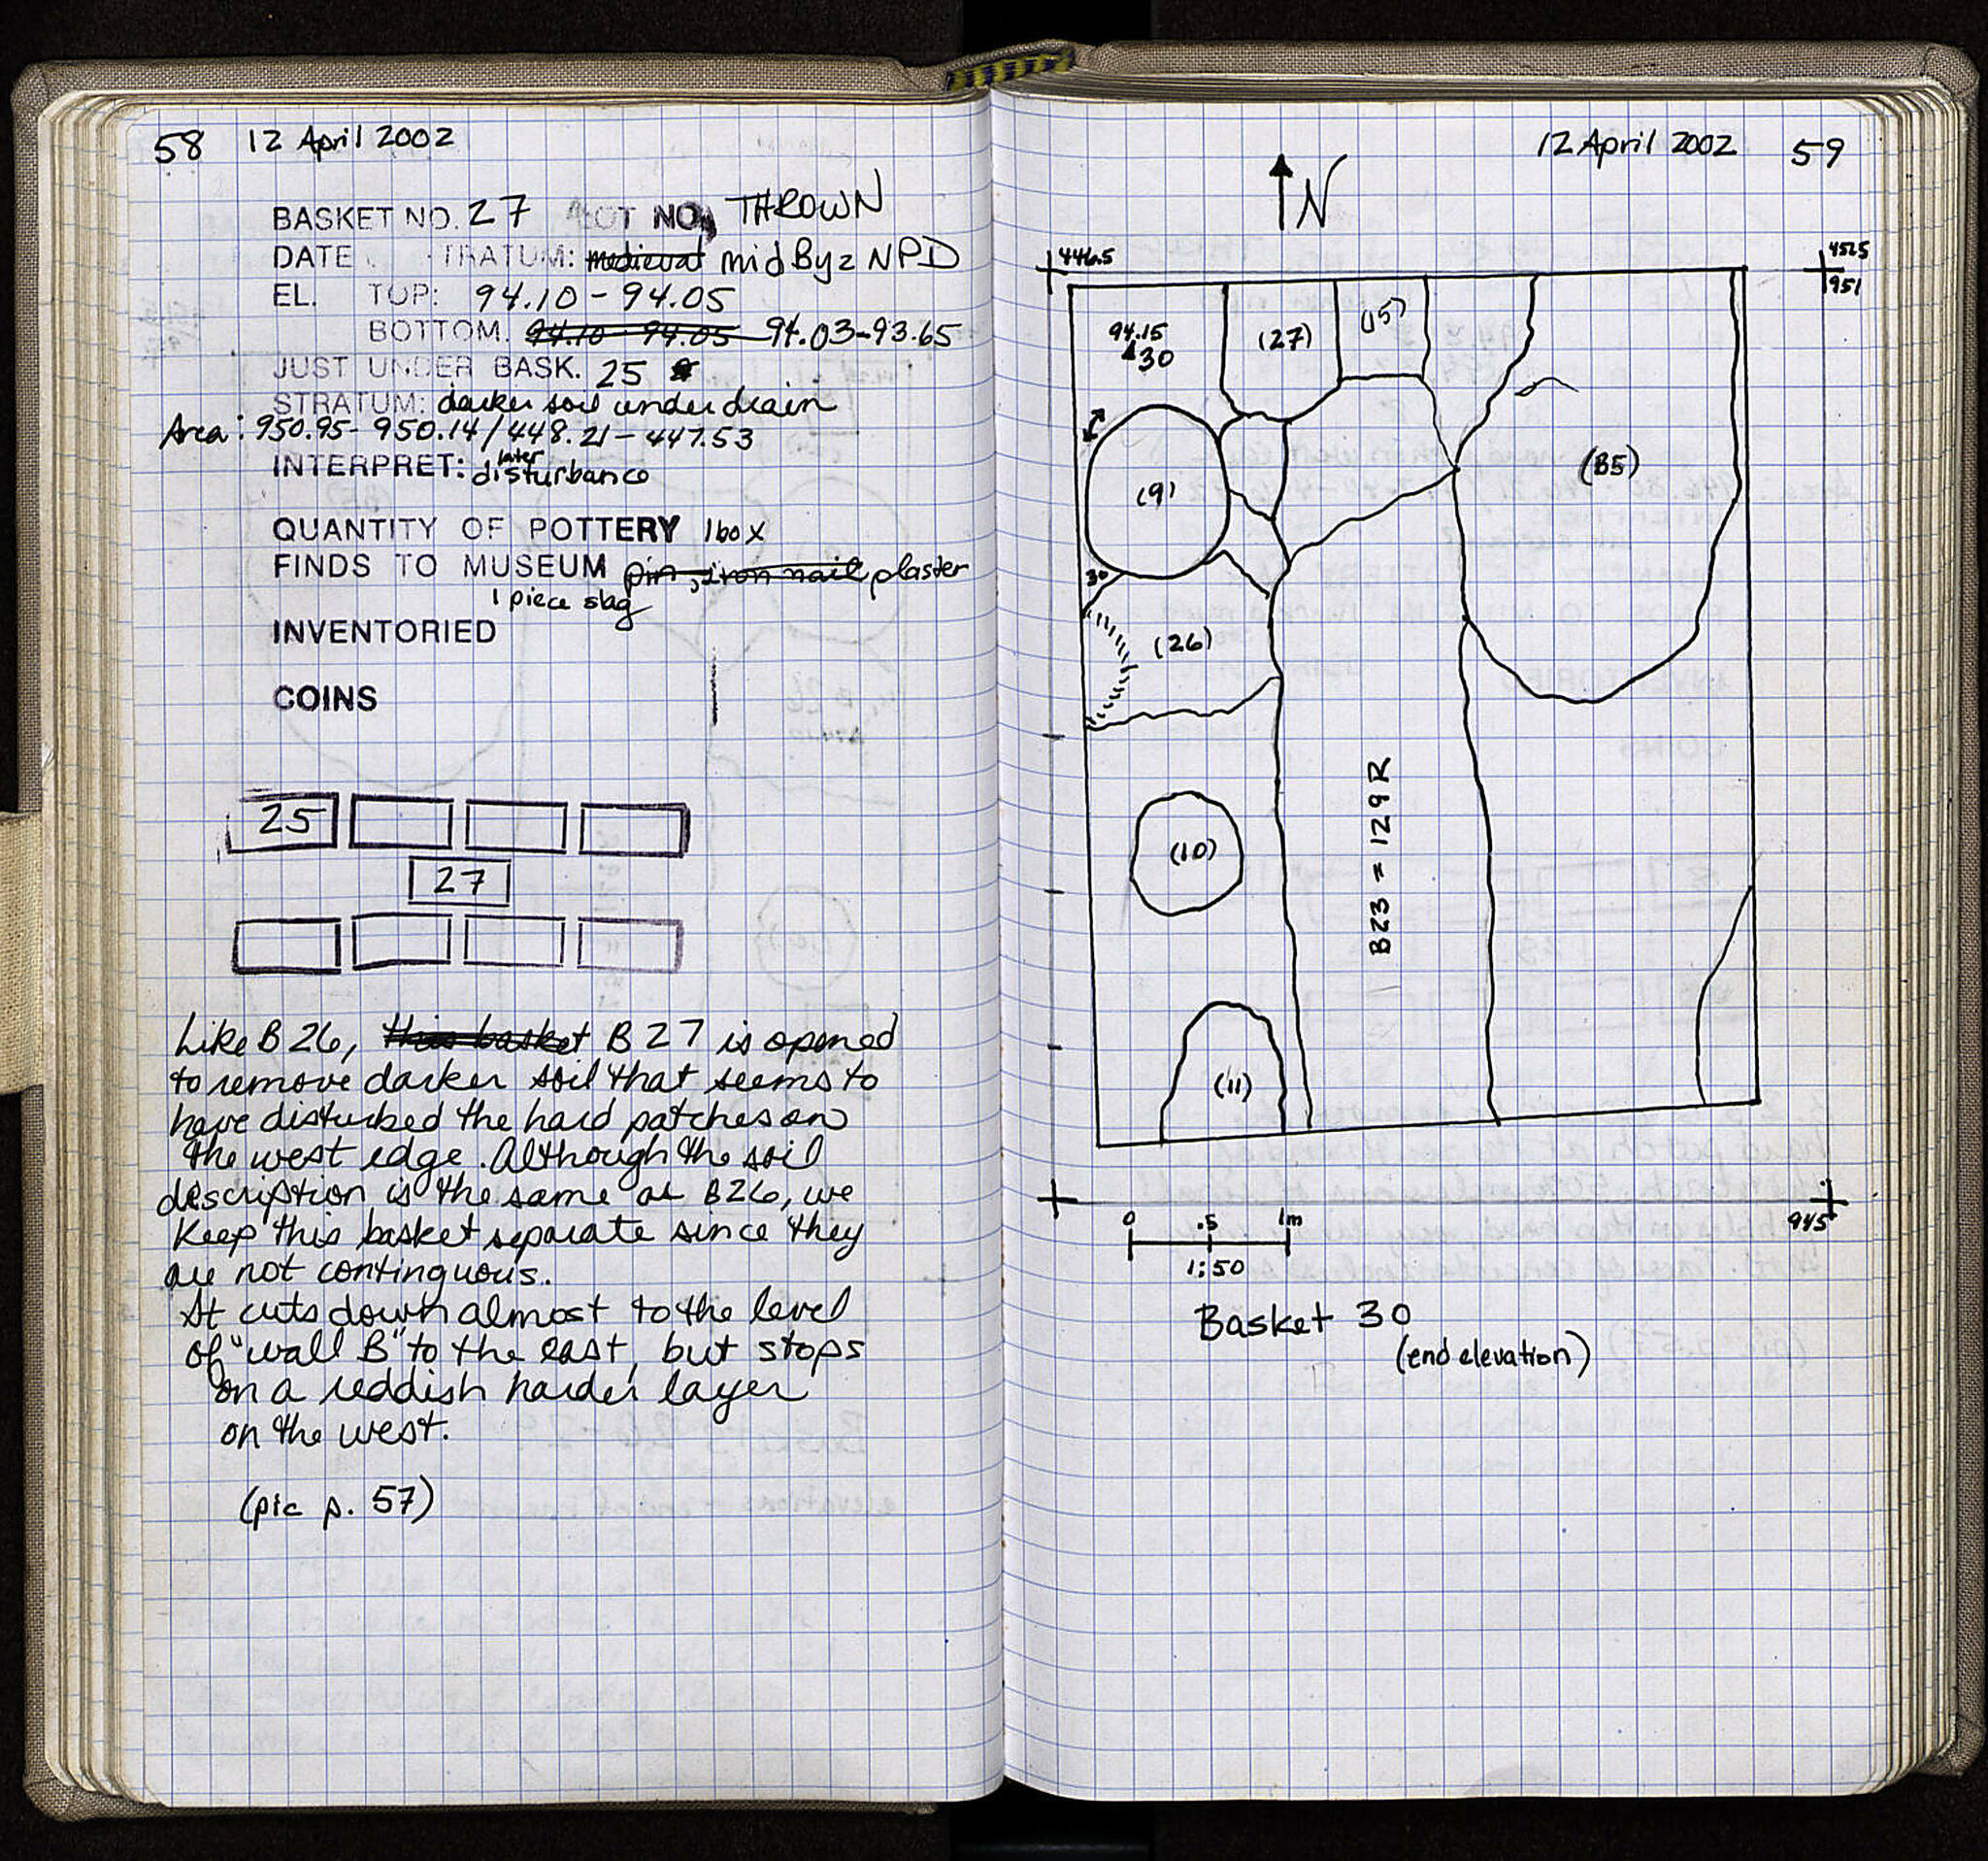 58 12 April 2002
BASKET NO. 27 LOT NO. THROWN
DATE STRATUM: medieval mid Byz NPD
EL. TOP: 94.10 - 94.05
BOTTOM. 94.10 - 94.05 94.03-93.65
JUST UNDER BASK. 25
STRATUM: darker soil under drain
Area: 950.95- 950.14/448.21- 447.53
later
INTERPRET: disturbance
QUANTITY OF POTTERY 1 box
FINDS TO MUSEUM pin, iron nail plaster
1 piece slag
INVENTORIED
COINS
25
27
Like B 26, this basket B 27 is opened
to remove darker soil that seems to
have disturbed the hard patches on
the west edge. Although the soil
description is the same as B26, we
keep this basket separate since they
are not continguous.
It cuts down almost to the level
of "wall B" to the east, but stops
on a reddish harder layer
on the west.
(pic p. 57)
12 April 2002 59
N
446.5
452.5
951
94.15
30
(27)
(15)
(B5)
(9)
30
(26)
B23 = 129 R
(10)
(11)
945
0 .5 1m
1:50
Basket 30
(end elevation)